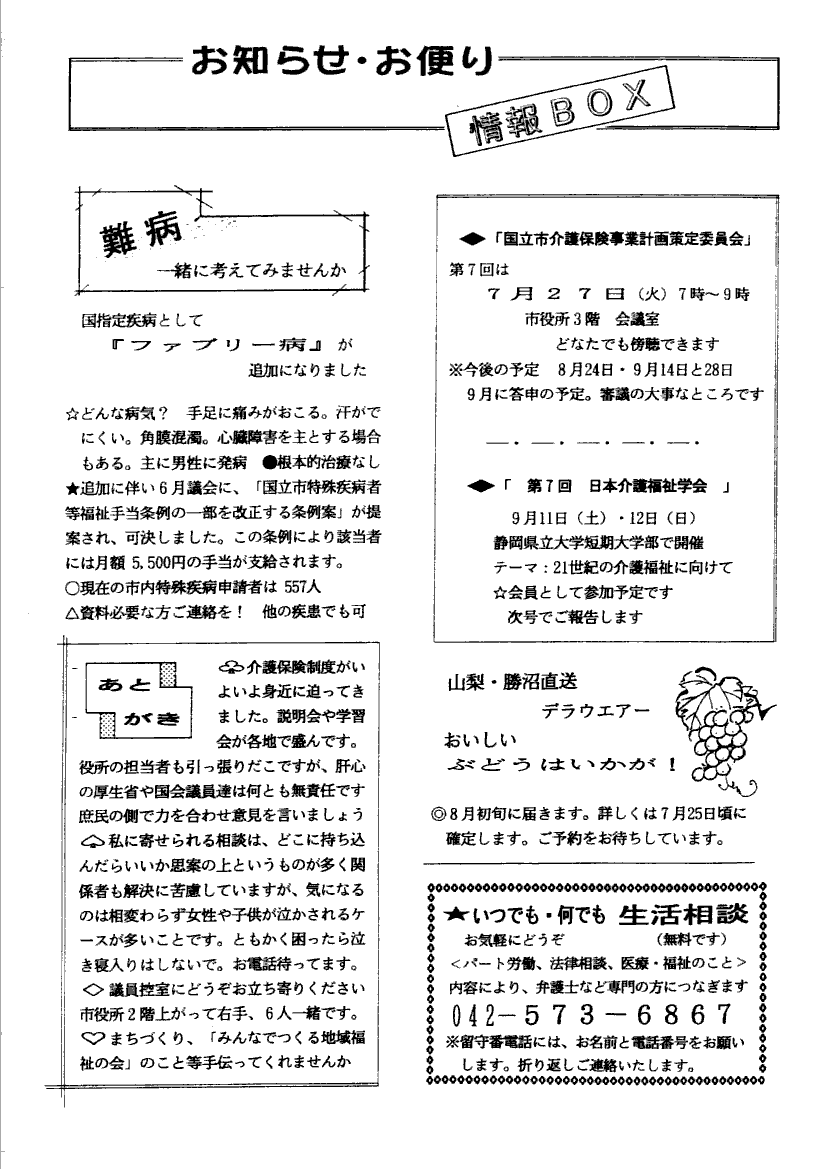 お知らせ・お便り
情報BOX
難病
一緒に考えてみませんか
国指定疾病として
『ファブリー病』が
追加になりました
☆どんな病気？　手足に痛みがおこる。汗がで
にくい。角膜混濁。心臓障害を主とする場合
もある。主に男性に発病　●根本的治療なし
★追加に伴い6月議会に、「国立市特殊疾病者
等福祉手当条例の一部を改正する条例案」が提
案され、可決しました。この条例により該当者
には月額 5,500円の手当が支給されます。
○現在の市内特殊疾病申請者は 557人
△資料必要な方ご連絡を！　他の疾患でも可
あと
がき
介護保険制度がい
よいよ身近に迫ってき
ました。説明会や学習
会が各地で盛んです。
役所の担当者も引っ張りだこですが、肝心
の厚生省や国会議員達は何とも無責任です
庶民の側で力を合わせ意見を言いましょう
私に寄せられる相談は、どこに持ち込
んだらいいか思案の上というものが多く関
係者も解決に苦慮していますが、気になる
のは相変わらず女性や子供が泣かされるケ
ースが多いことです。ともかく困ったら泣
き寝入りはしないで。お電話待ってます。
◇ 議員控室にどうぞお立ち寄りください
市役所2階上がって右手、6人一緒です。
♡ まちづくり、「みんなでつくる地域福
祉の会」のこと等手伝ってくれませんか
◆「国立市介護保険事業計画策定委員会」
第7回は
7月27日（火）7時～9時
市役所3階　会議室
どなたでも傍聴できます
※今後の予定　8月24日・9月14日と28日
9月に答申の予定。審議の大事なところです
◆「 第7回　日本介護福祉学会 」
9月11日（土）・12日（日）
静岡県立大学短期大学部で開催
テーマ：21世紀の介護福祉に向けて
☆会員として参加予定です
次号でご報告します
山梨・勝沼直送
デラウエアー
おいしい
ぶどうはいかが！
◎8月初旬に届きます。詳しくは7月25日頃に
確定します。ご予約をお待ちしています。
★いつでも・何でも　生活相談
お気軽にどうぞ　（無料です）
＜パート労働、法律相談、医療・福祉のこと＞
内容により、弁護士など専門の方につなぎます
042－573－6867
※留守番電話には、お名前と電話番号をお願い
します。折り返しご連絡いたします。